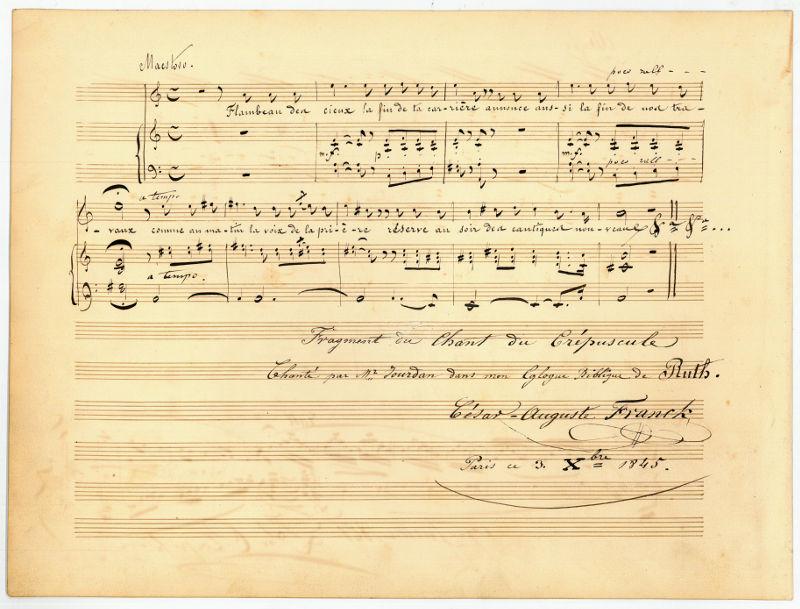 Maestoso.
poco rall - - -
Flambeau des cieux la fin de ta car-rière annonce aus-si la fin de nos tra-
m.f. p m.f. poco rall - - - -
a tempo
-vaux comme au ma-tin la voix de la pri-è-re réserve au soir des cantiques nou-veaux
a tempo.
Fragment du Chant du Crépuscule
Chanté par Mr Jourdan dans mon Eglogue Biblique de Ruth.
César-Auguste Franck
Paris ce 3. Xbre 1845.